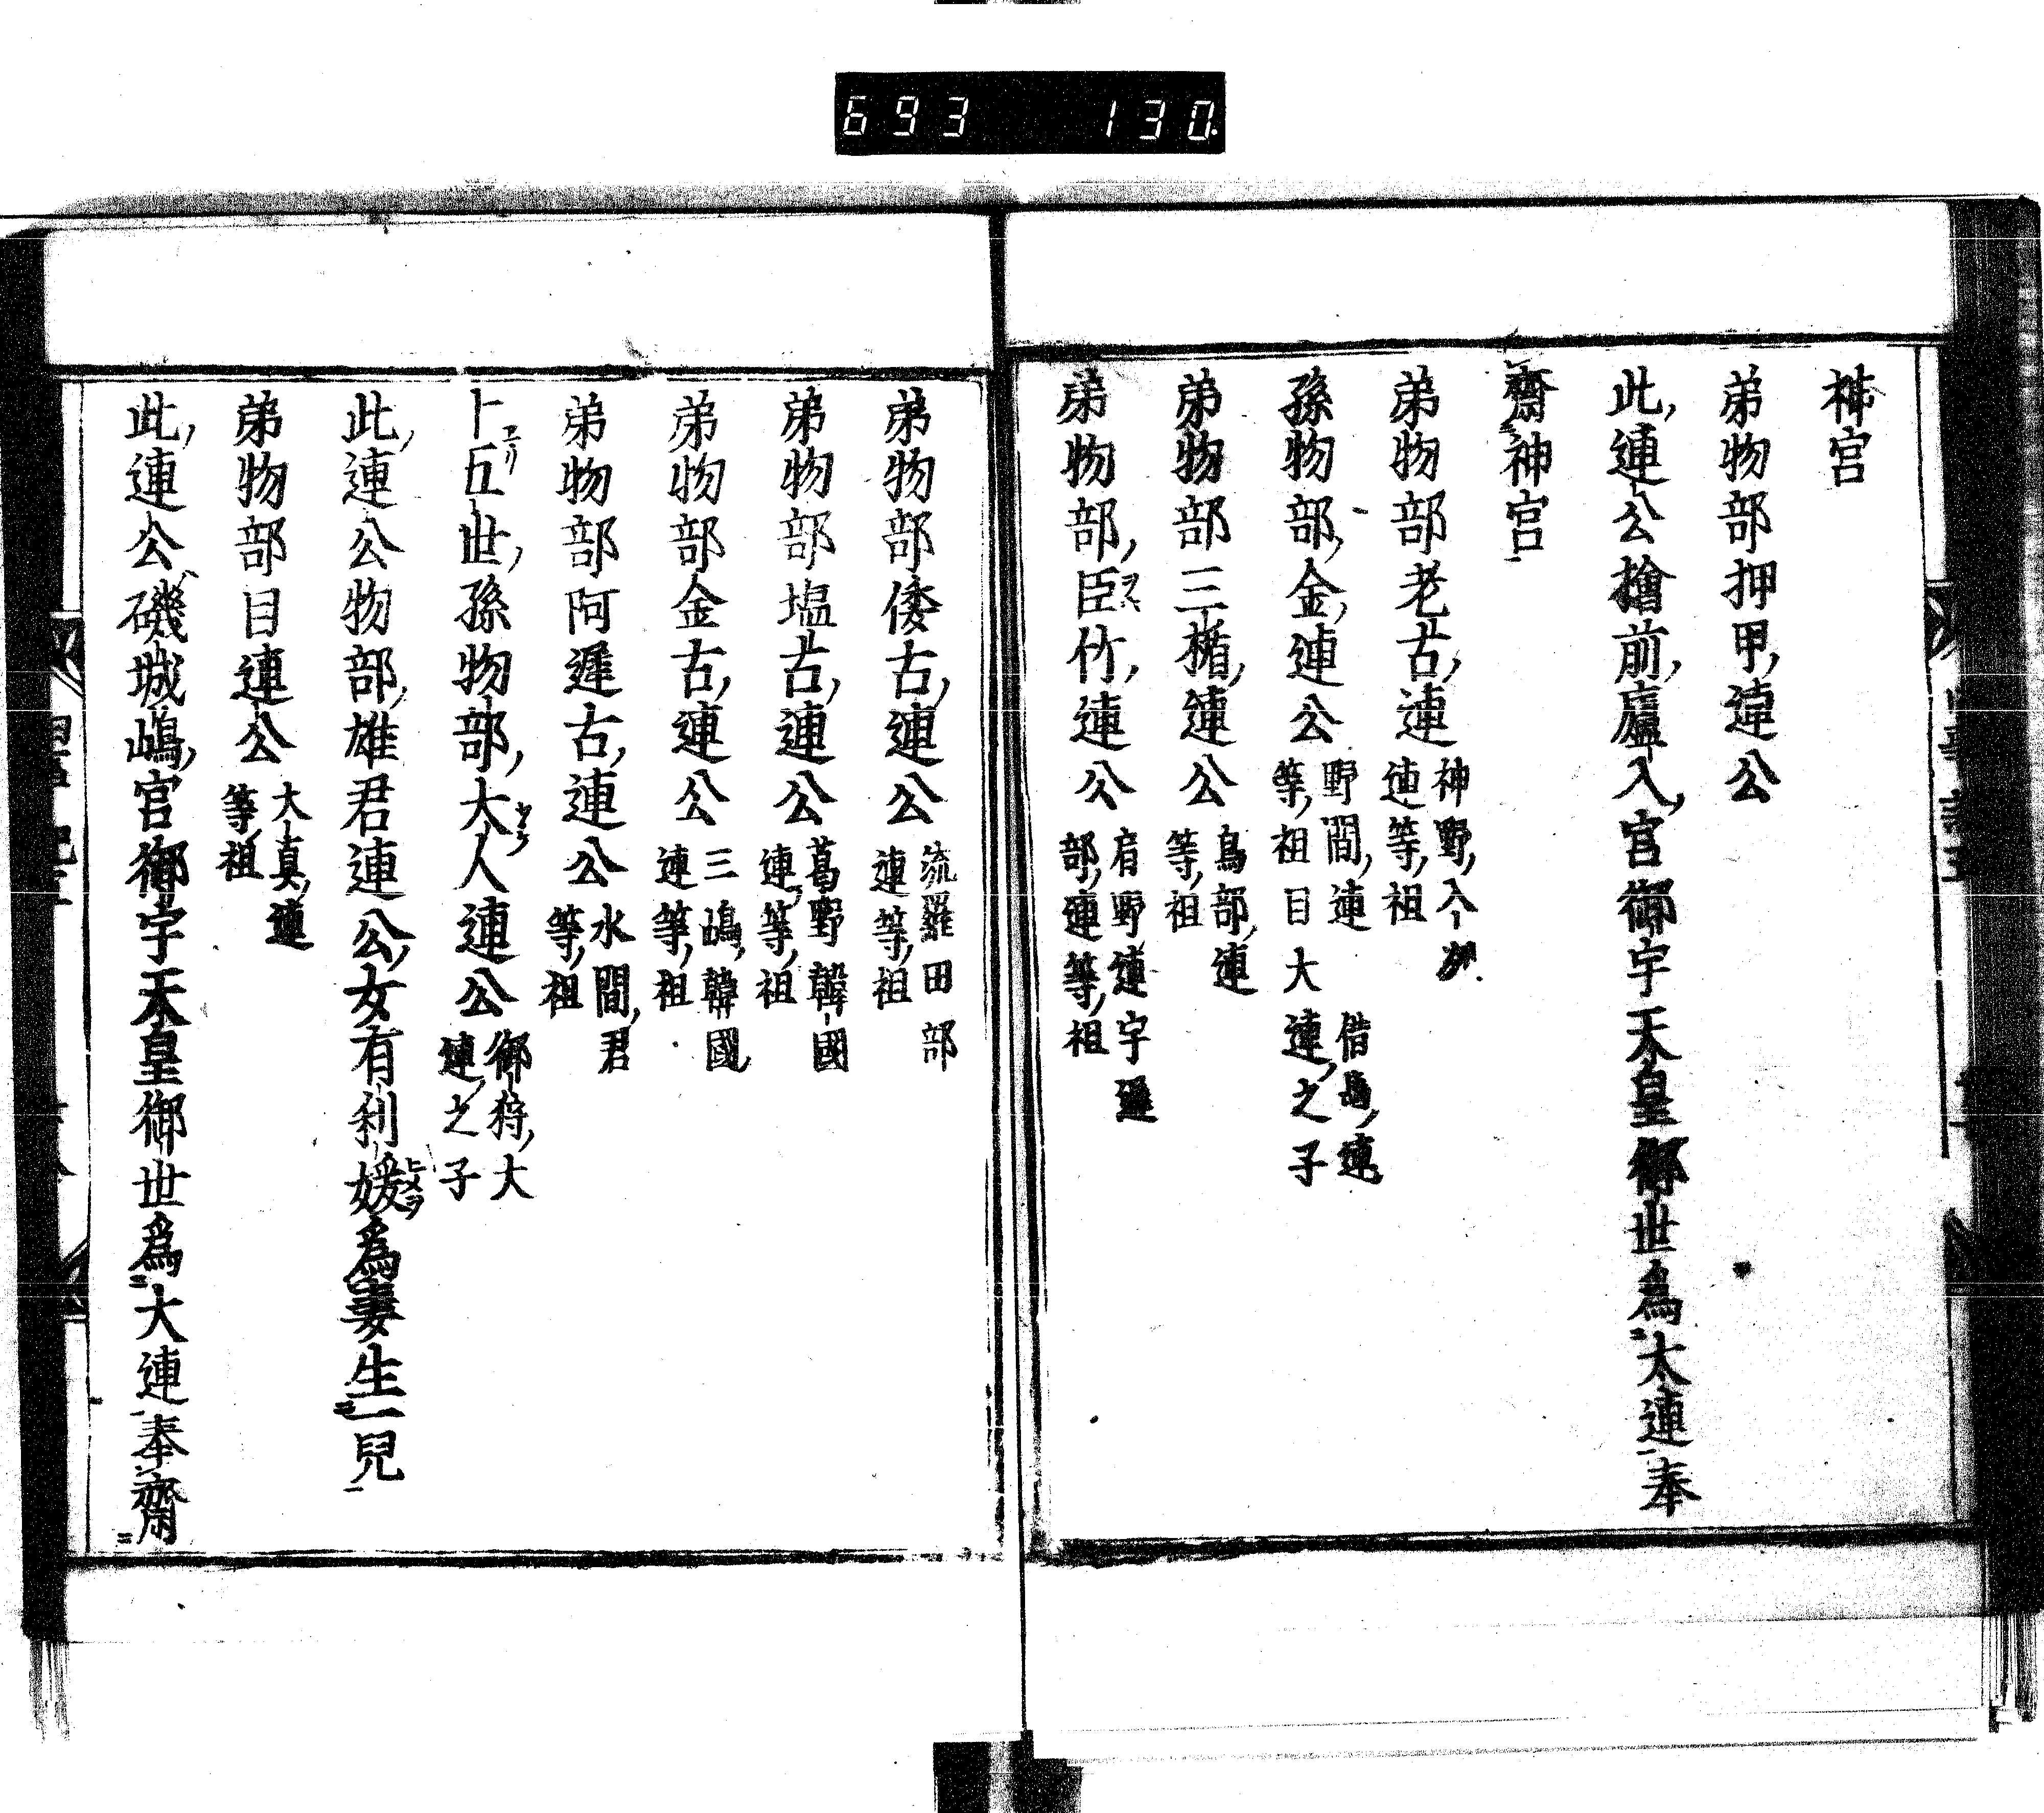 693 130
神宮
弟物部押甲連公
此連公檜前廬入宮御宇天皇御世爲大連奉
齋神宮
弟物部老古連 神野入州
連等祖
孫物部金連公 野間連 借馬連
等祖 目大連之子
弟物部三楯連公 鳥部連
等祖
弟物部臣竹連公 肩野連宇遲
部連等祖
弟物部倭古連公 流羅田部
連等祖
弟物部塩古連公 葛野韓國
連等祖
弟物部金古連公 三嶋韓國
連等祖
弟物部阿遲古連公 水間君
等祖
十五世孫物部大人連公 御狩大
連之子
此連公物部雄君連公女有利媛爲妻生一兒
弟物部目連公 大真連
等祖
此連公磯城嶋宮御宇天皇御世爲大連奉齋